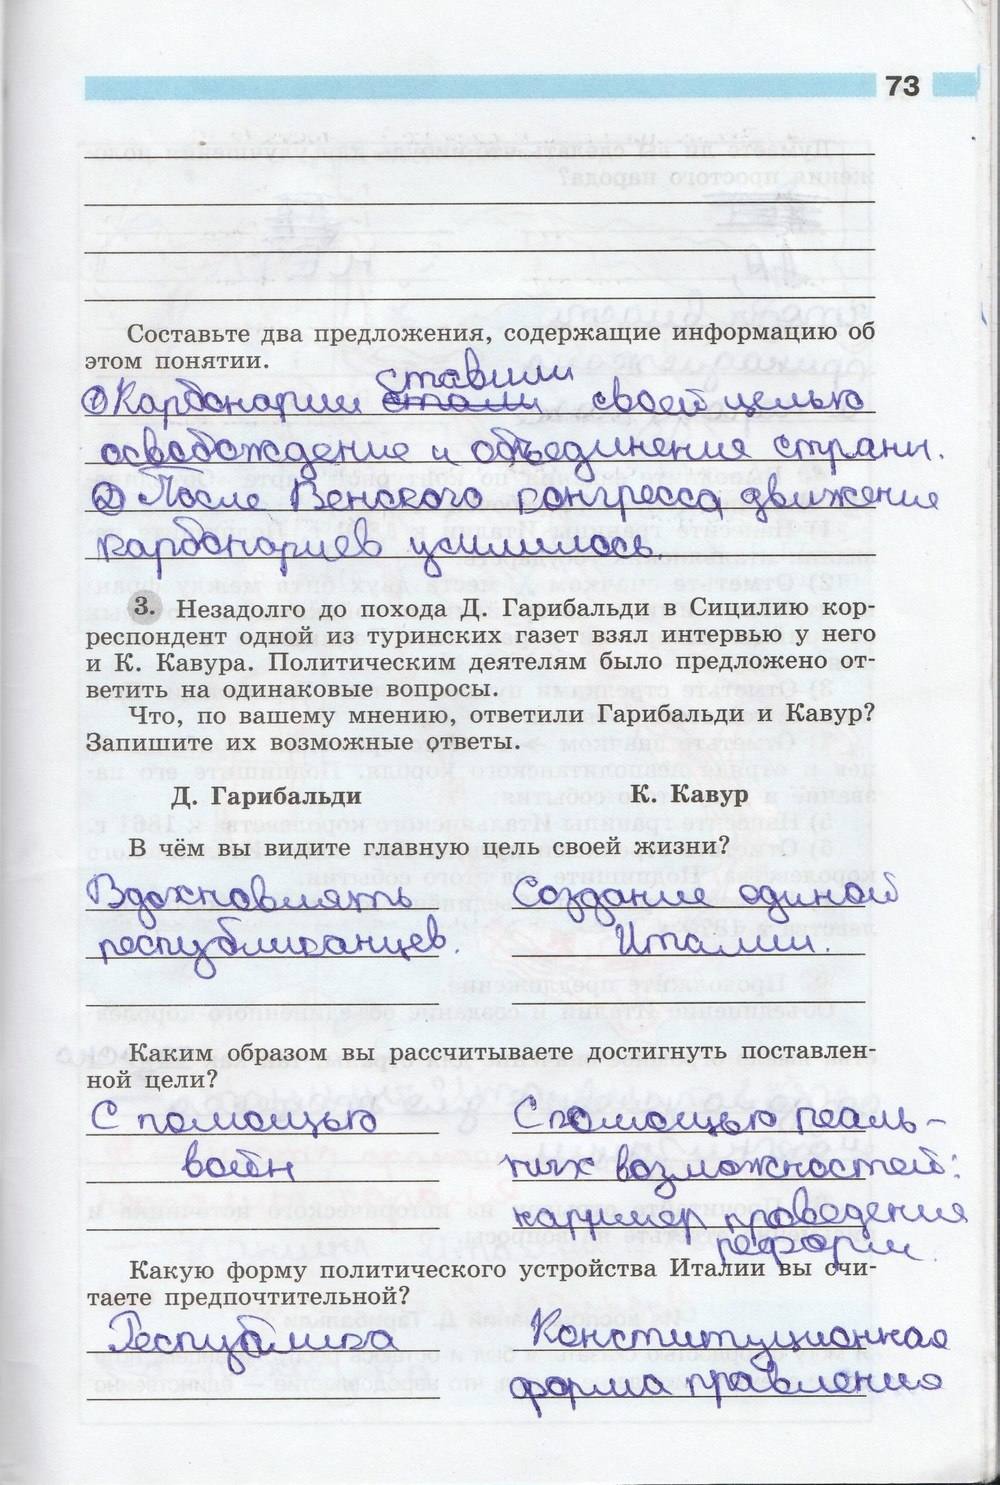 73
Составьте два предложения, содержащие информацию об
этом понятии.
ставили
① Карбонарии стали своей целью
освобождение и объединения страны.
② После Венского конгресса движение
карбонариев усилилось.
3. Незадолго до похода Д. Гарибальди в Сицилию кор-
респондент одной из туринских газет взял интервью у него
и К. Кавура. Политическим деятелям было предложено от-
ветить на одинаковые вопросы.
Что, по вашему мнению, ответили Гарибальди и Кавур?
Запишите их возможные ответы.
Д. Гарибальди К. Кавур
В чём вы видите главную цель своей жизни?
Вдохновлять Создание единой
республиканцев. Италии.
Каким образом вы рассчитываете достигнуть поставлен-
ной цели?
С помощью С помощью реаль-
войн ных возможностей:
например проведения
реформ.
Какую форму политического устройства Италии вы счи-
таете предпочтительной?
Республика Конституционная
форма правления